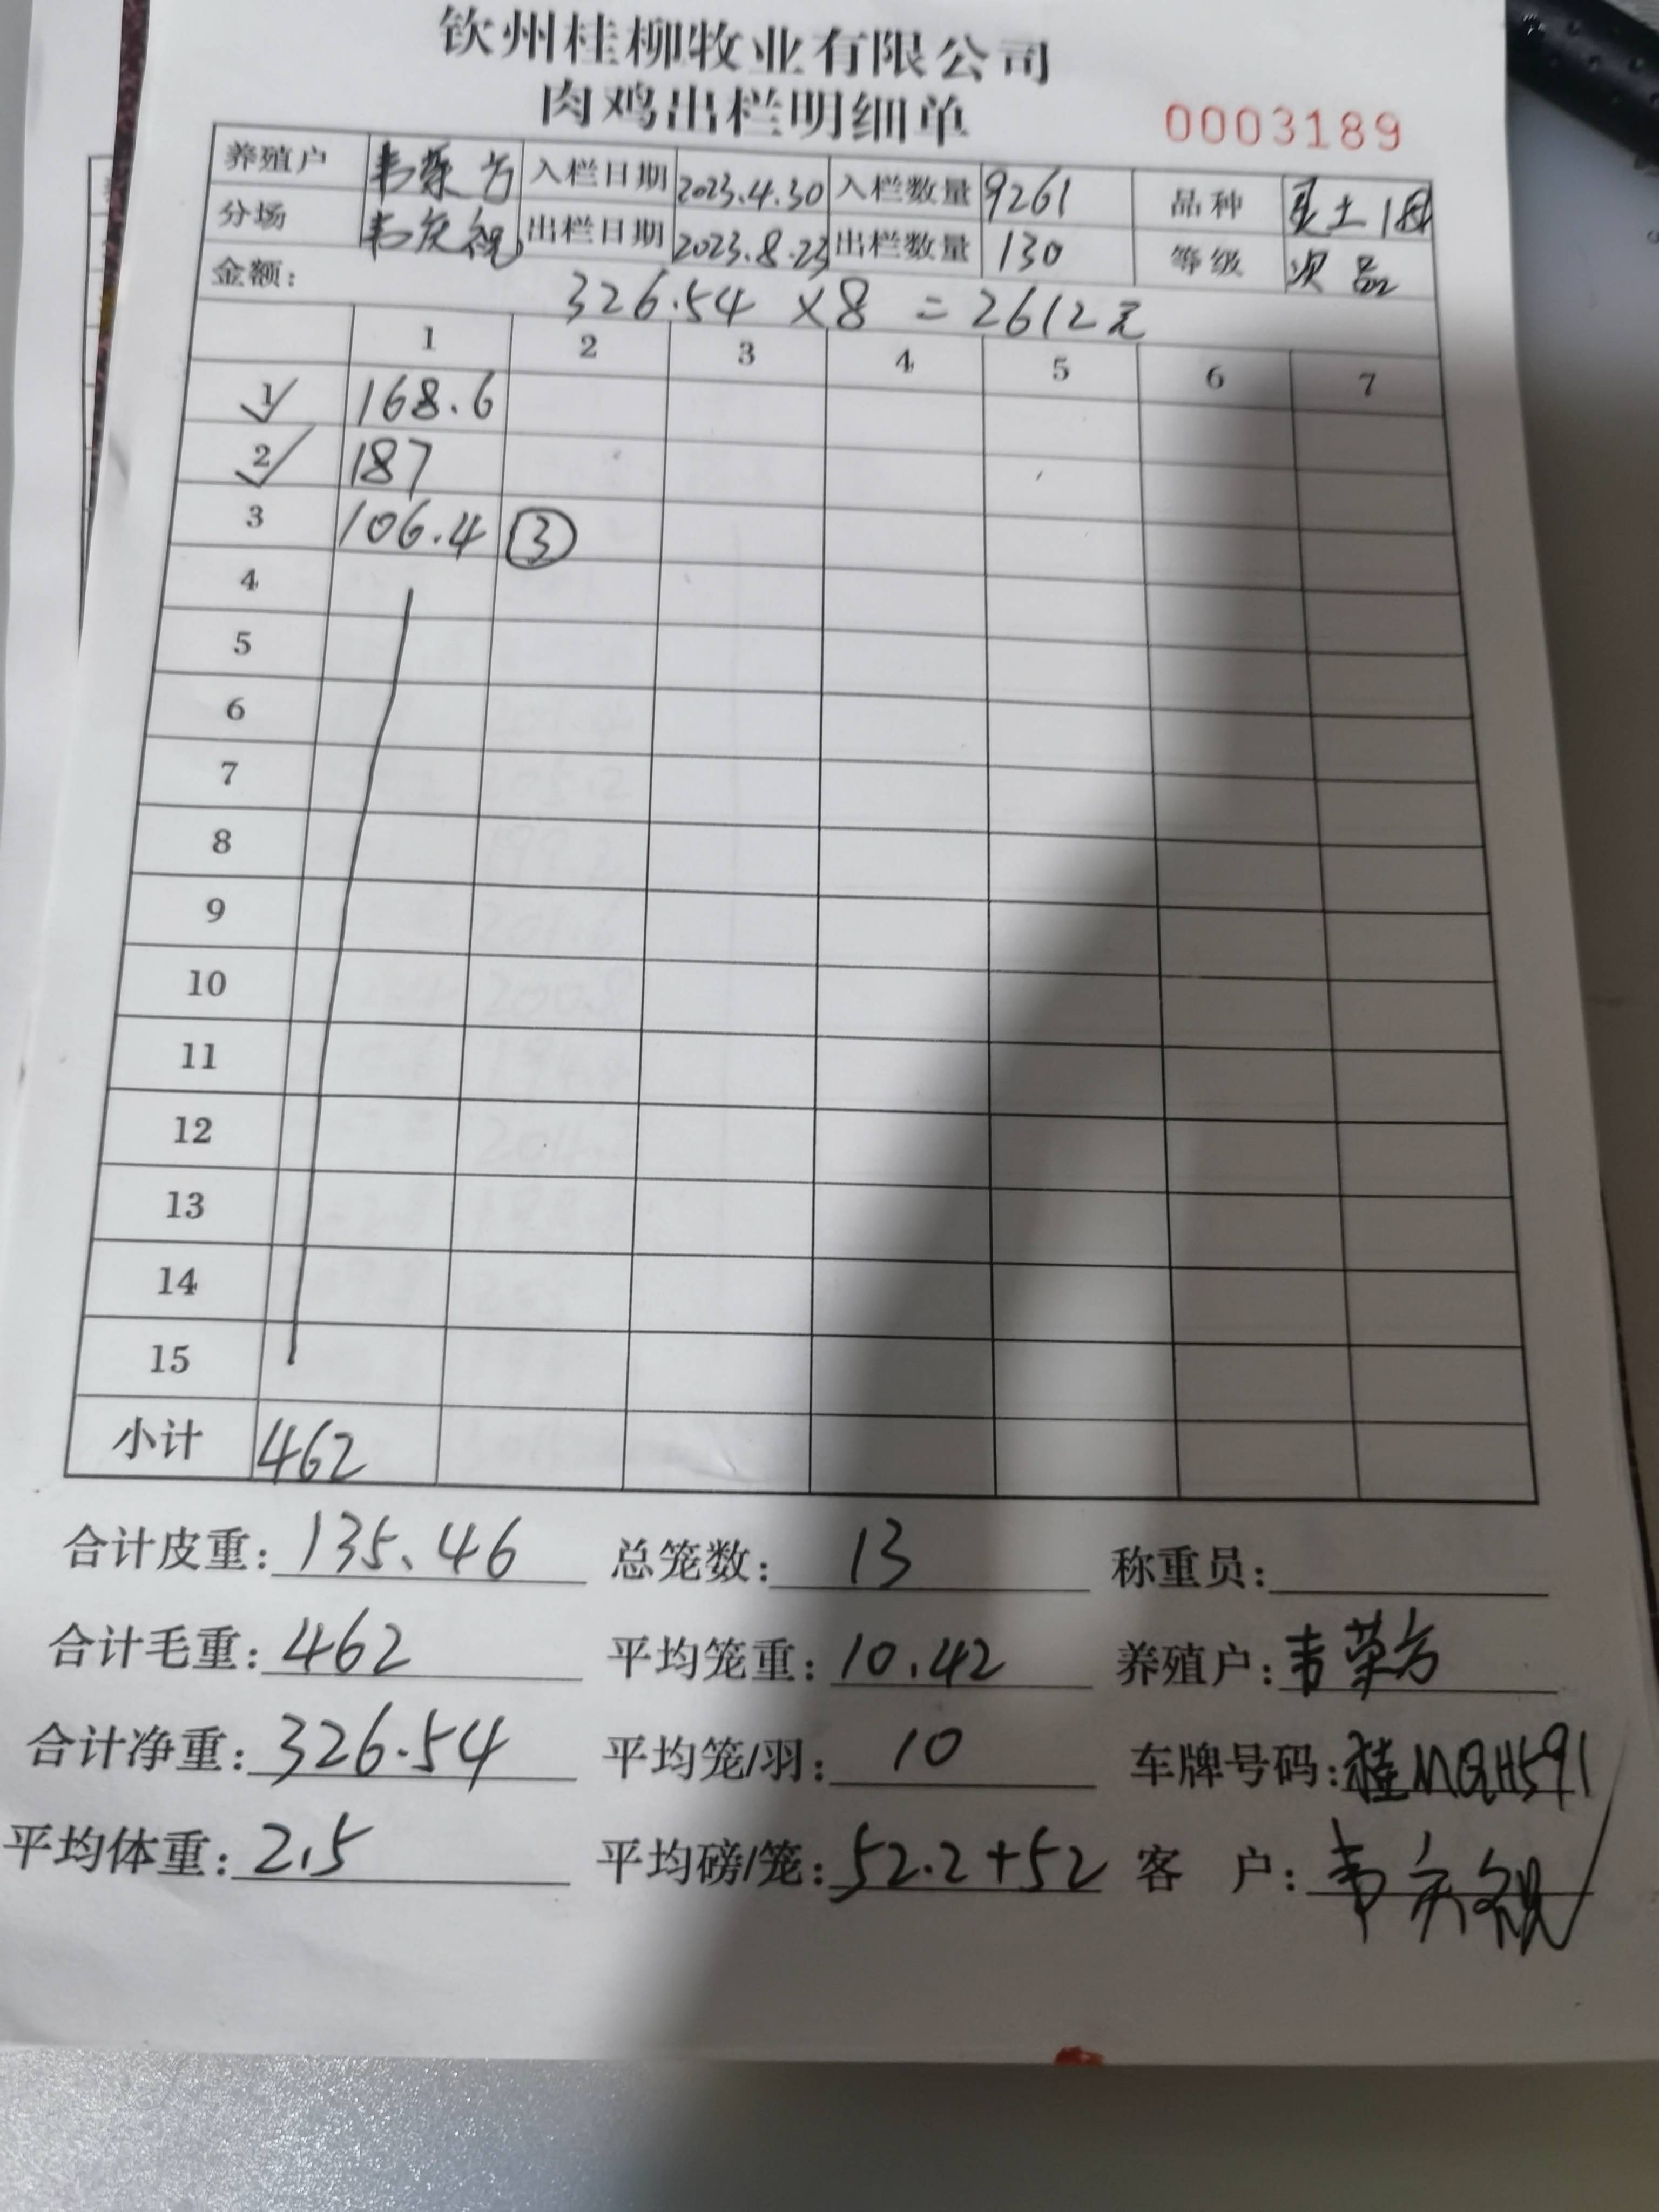 钦州桂柳牧业有限公司
肉鸡出栏明细单
0003189
养殖户 韦荣方 入栏日期 2023.4.30 入栏数量 9261 品种 土1
分场 韦庆祝 出栏日期 2023.8.23 出栏数量 130 等级 次品
金额: 326.54 ×8 = 2612元
1 2 3 4 5 6 7
1 168.6
2 187
3 106.4 ③
4
5
6
7
8
9
10
11
12
13
14
15
小计 462
合计皮重: 135.46 总笼数: 13 称重员:
合计毛重: 462 平均笼重: 10.42 养殖户: 韦荣方
合计净重: 326.54 平均笼/羽: 10 车牌号码: 桂MQH591
平均体重: 2.5 平均磅/笼: 52.2+52 客 户: 韦庆祝